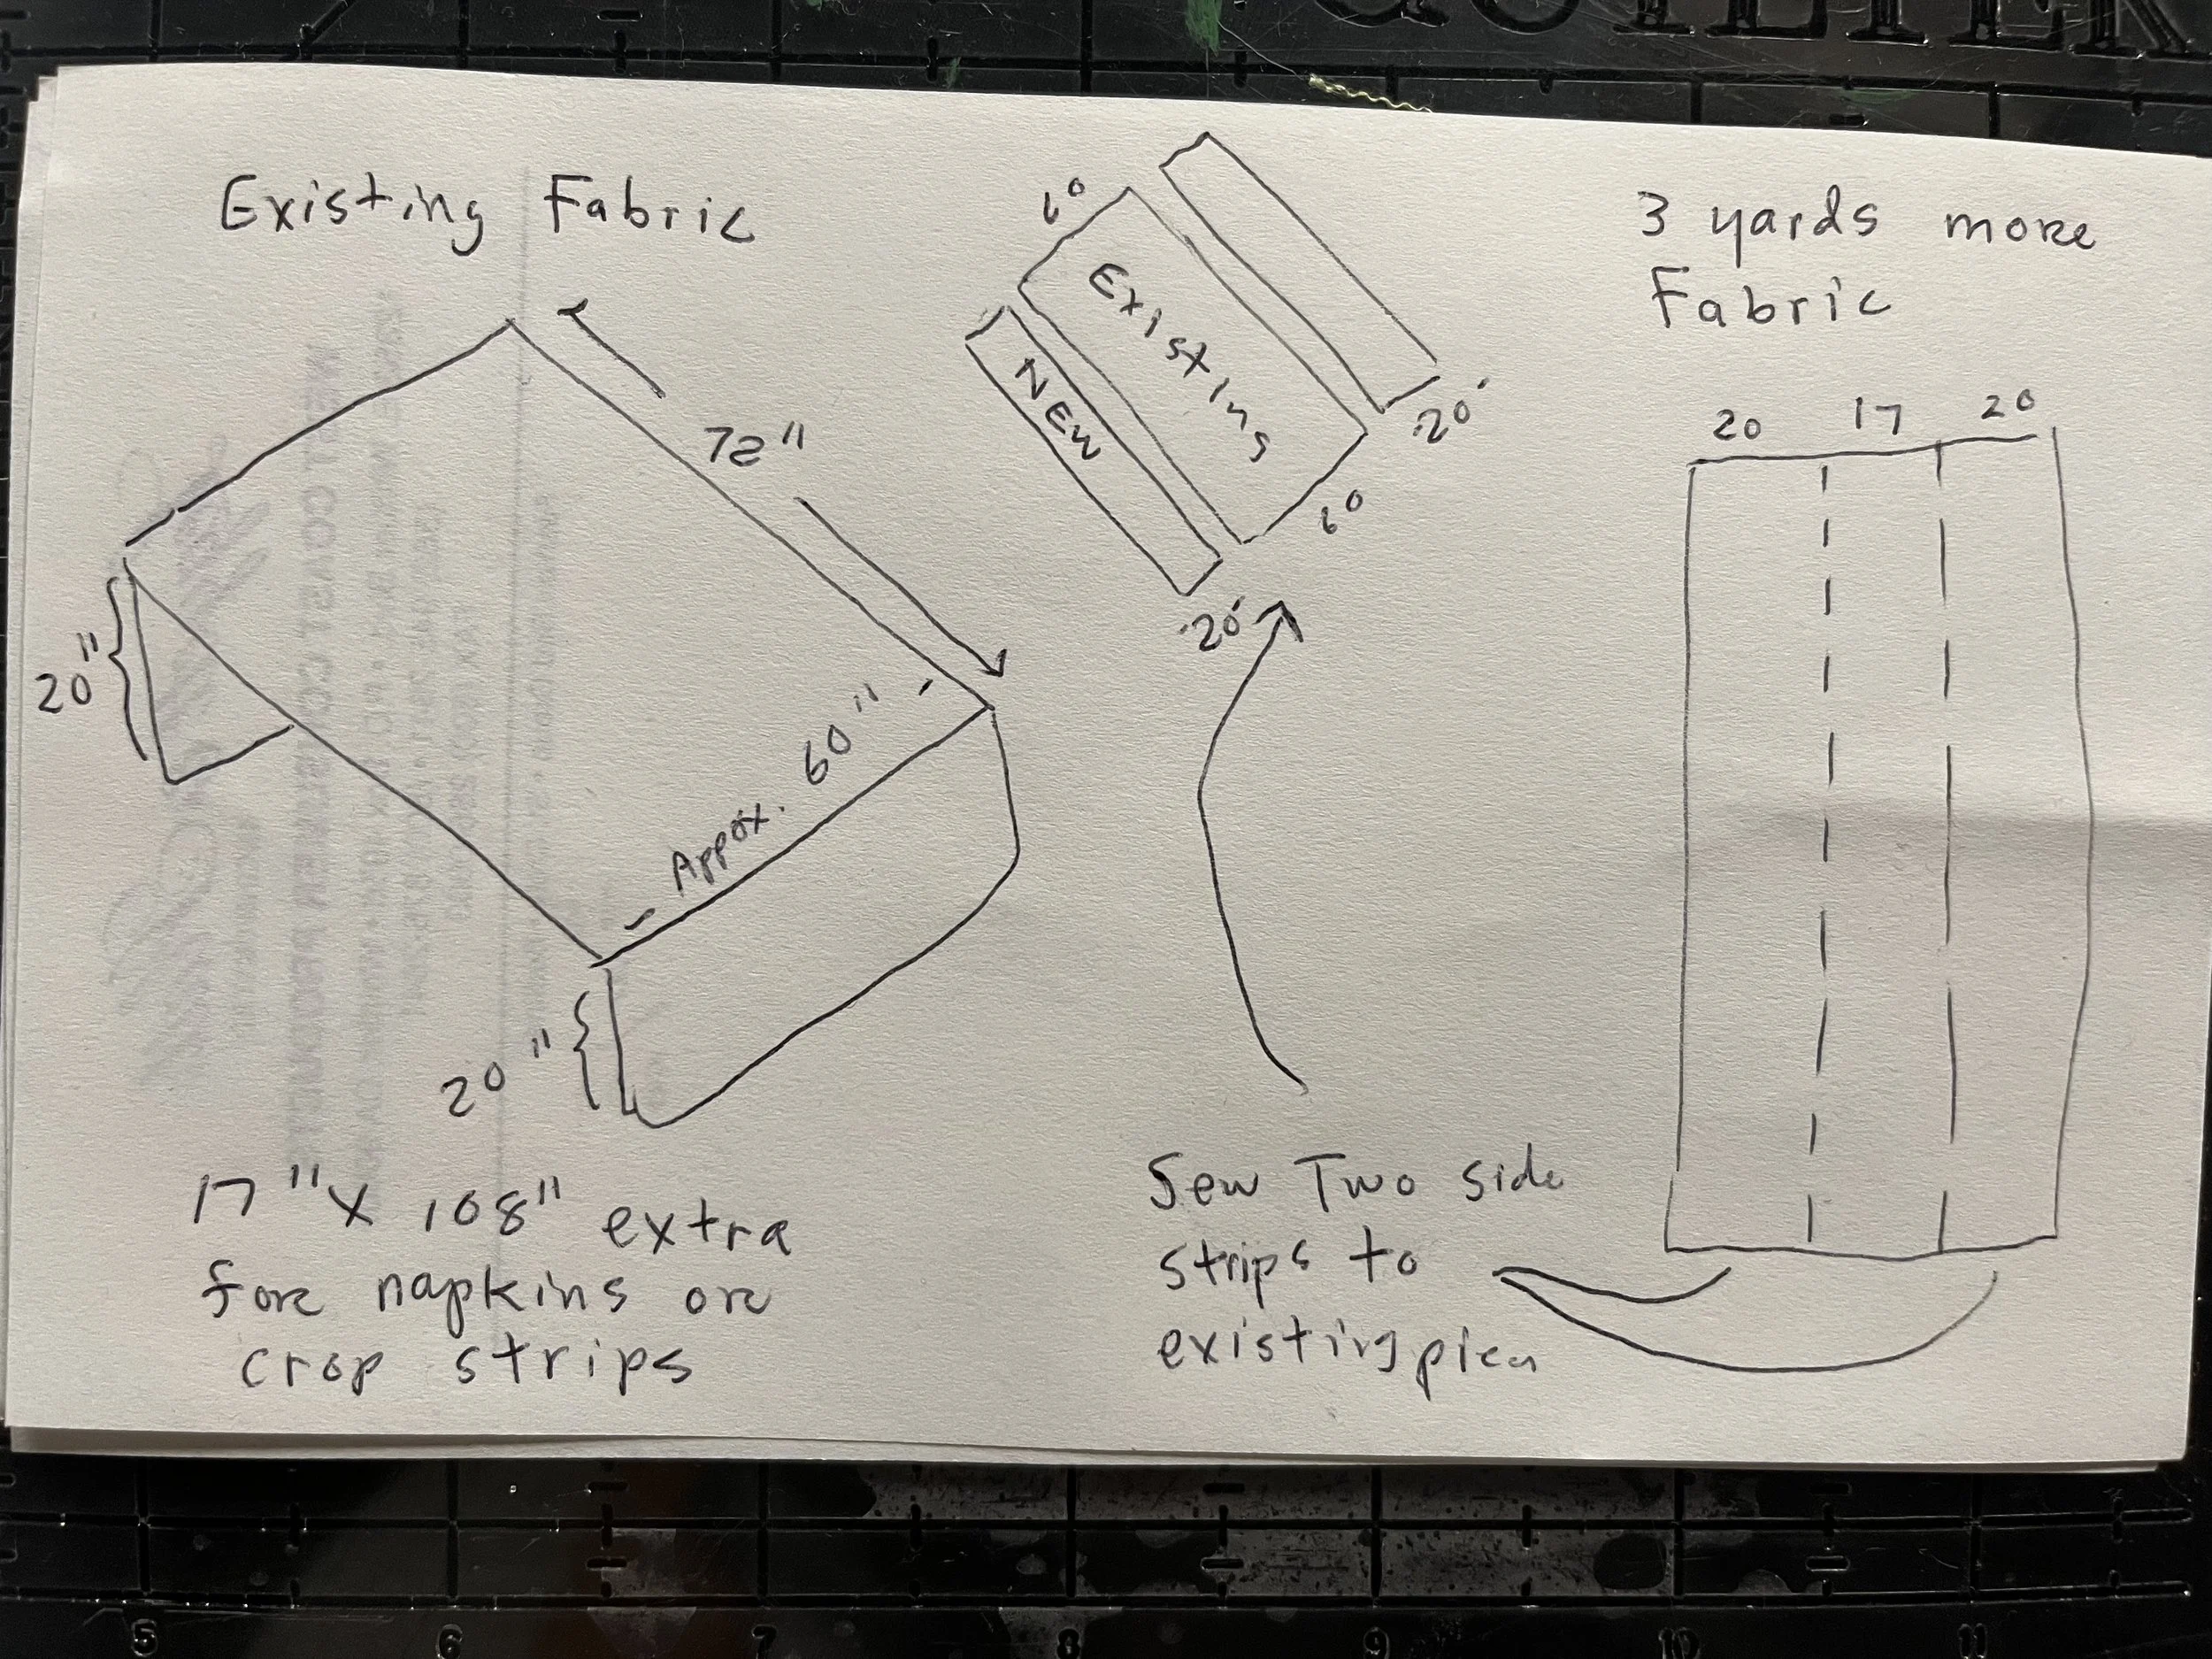 Existing Fabric
72"
20"
Appox. 60"
20"
17" x 108" extra
for napkins or
crop strips
60
Existing
NEW
20"
60
20"
Sew Two side
strips to
existing piece
3 yards more
Fabric
20 17 20
QUILTER
5 6 7 8 9 10 11